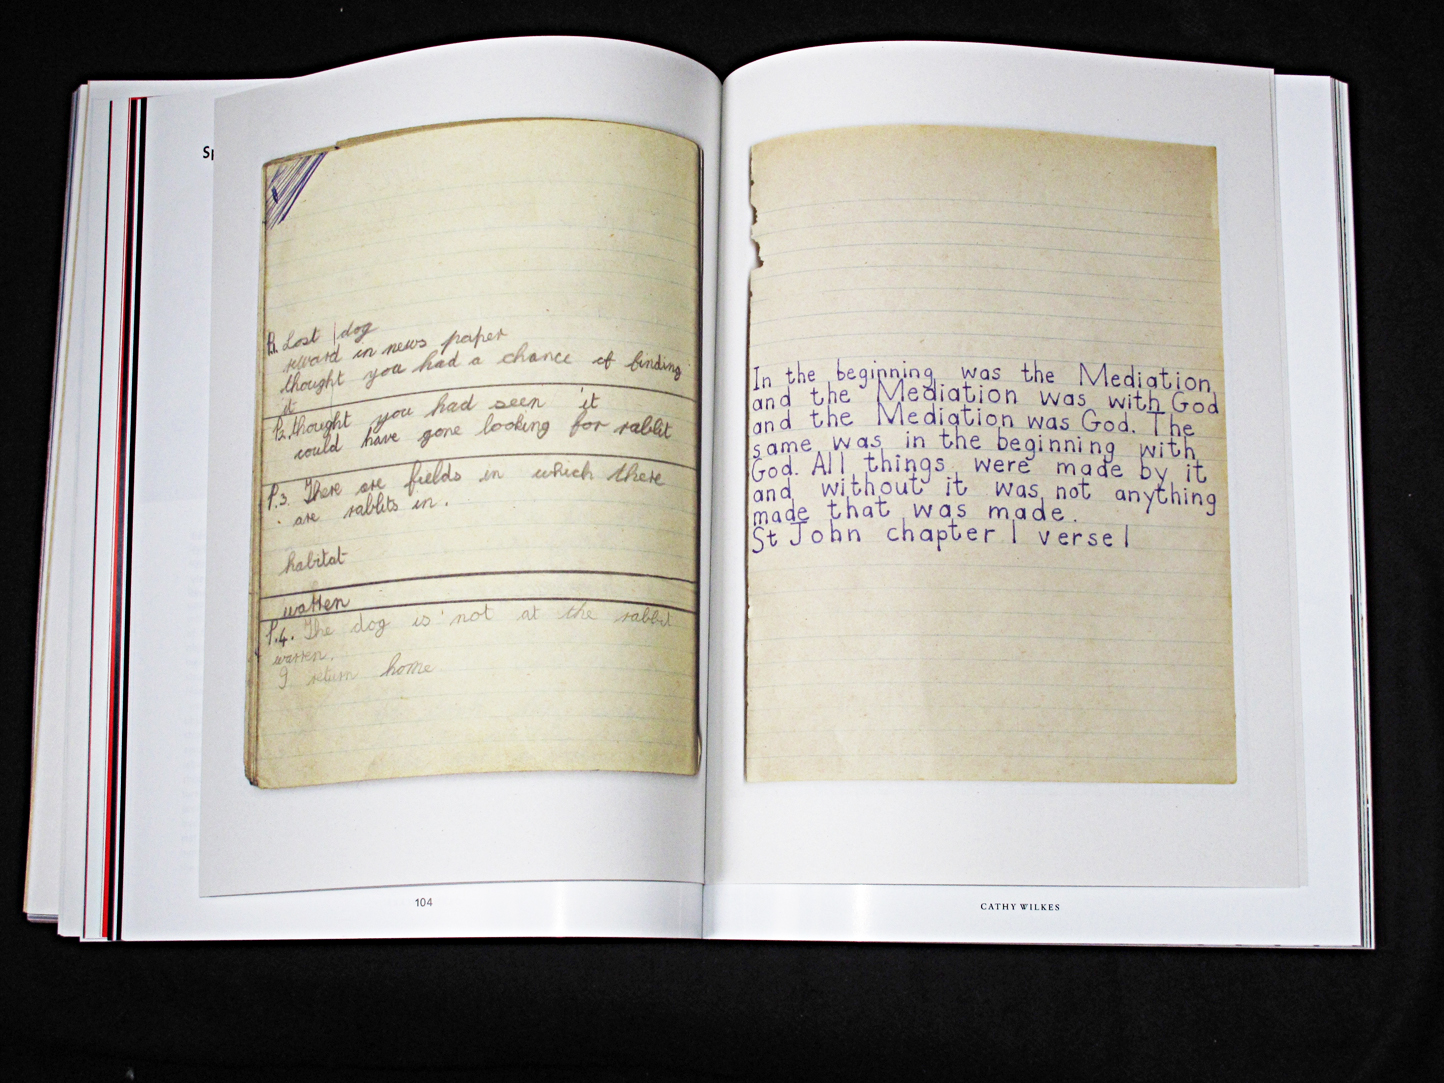 Sp
P.1. Lost dog
reward in news paper
thought you had a chance of finding
it
P.2. thought you had seen it
could have gone looking for rabbit
P.3. There are fields in which there
are rabbits in.
habitat
warren
P.4. The dog is not at the rabbit
warren.
I return home
In the beginning was the Mediation,
and the Mediation was with God
and the Mediation was God. The
same was in the beginning with
God. All things were made by it
and without it was not anything
made that was made.
St John chapter 1 verse 1
104
CATHY WILKES